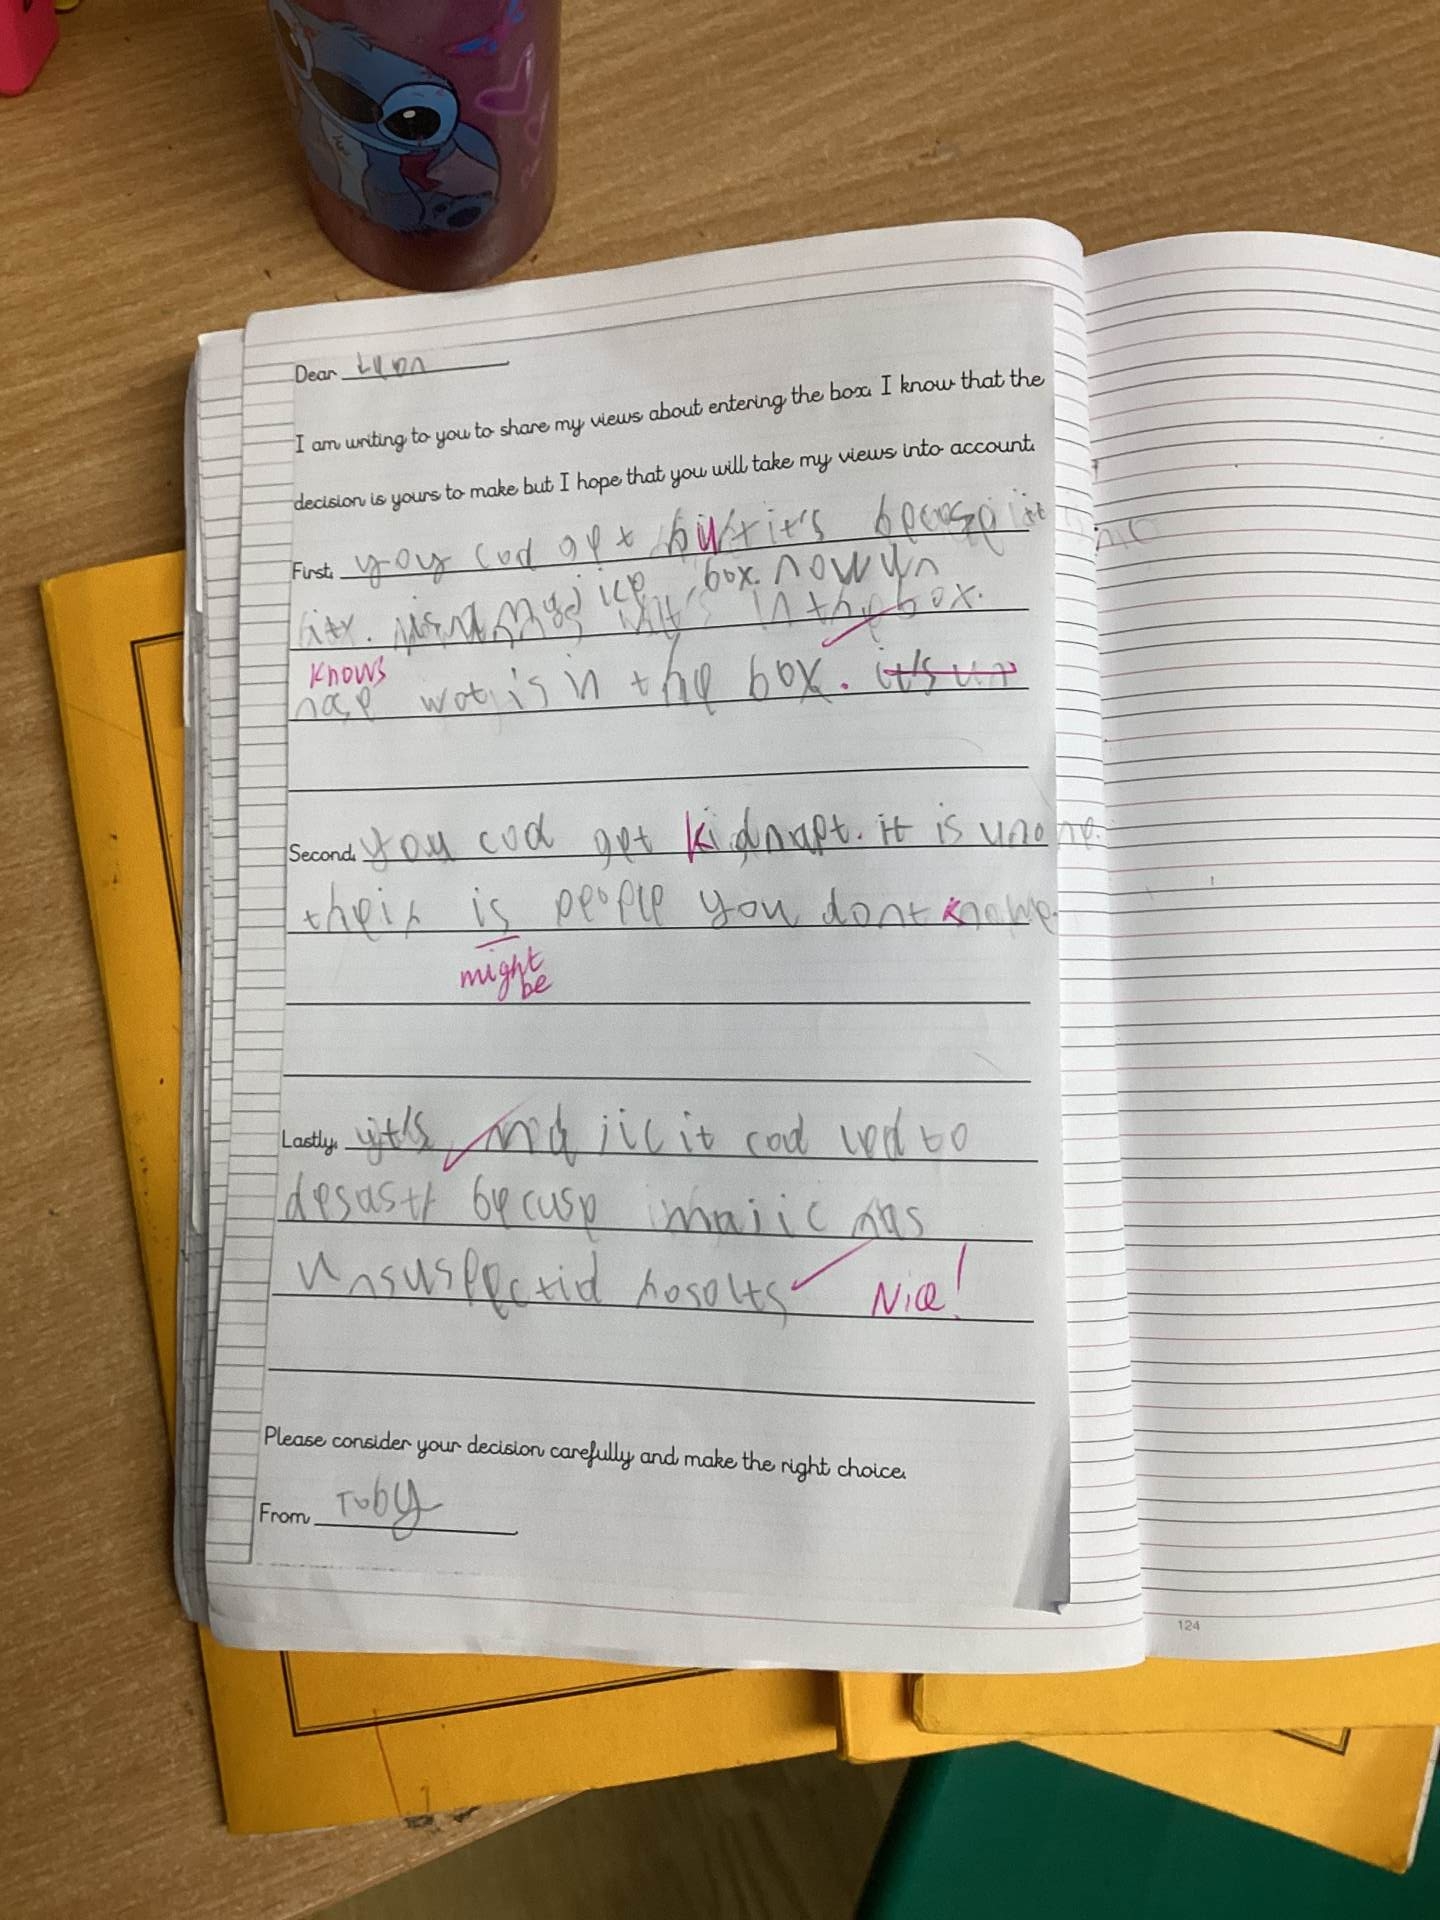 Dear Leon
I am writing to you to share my views about entering the box. I know that the
decision is yours to make but I hope that you will take my views into account.
First, you cod get hurt it's because it
box. now un
in the box.
knows
nose wot is in the box. it's un
Second, you cod get kidnapt. it is unone.
their is people you dont knowe.
might
be
Lastly, it's majic it cod led to
desastr becuse majic has
unsuspectid rosolts
Nice!
Please consider your decision carefully and make the right choice.
From Toby
124